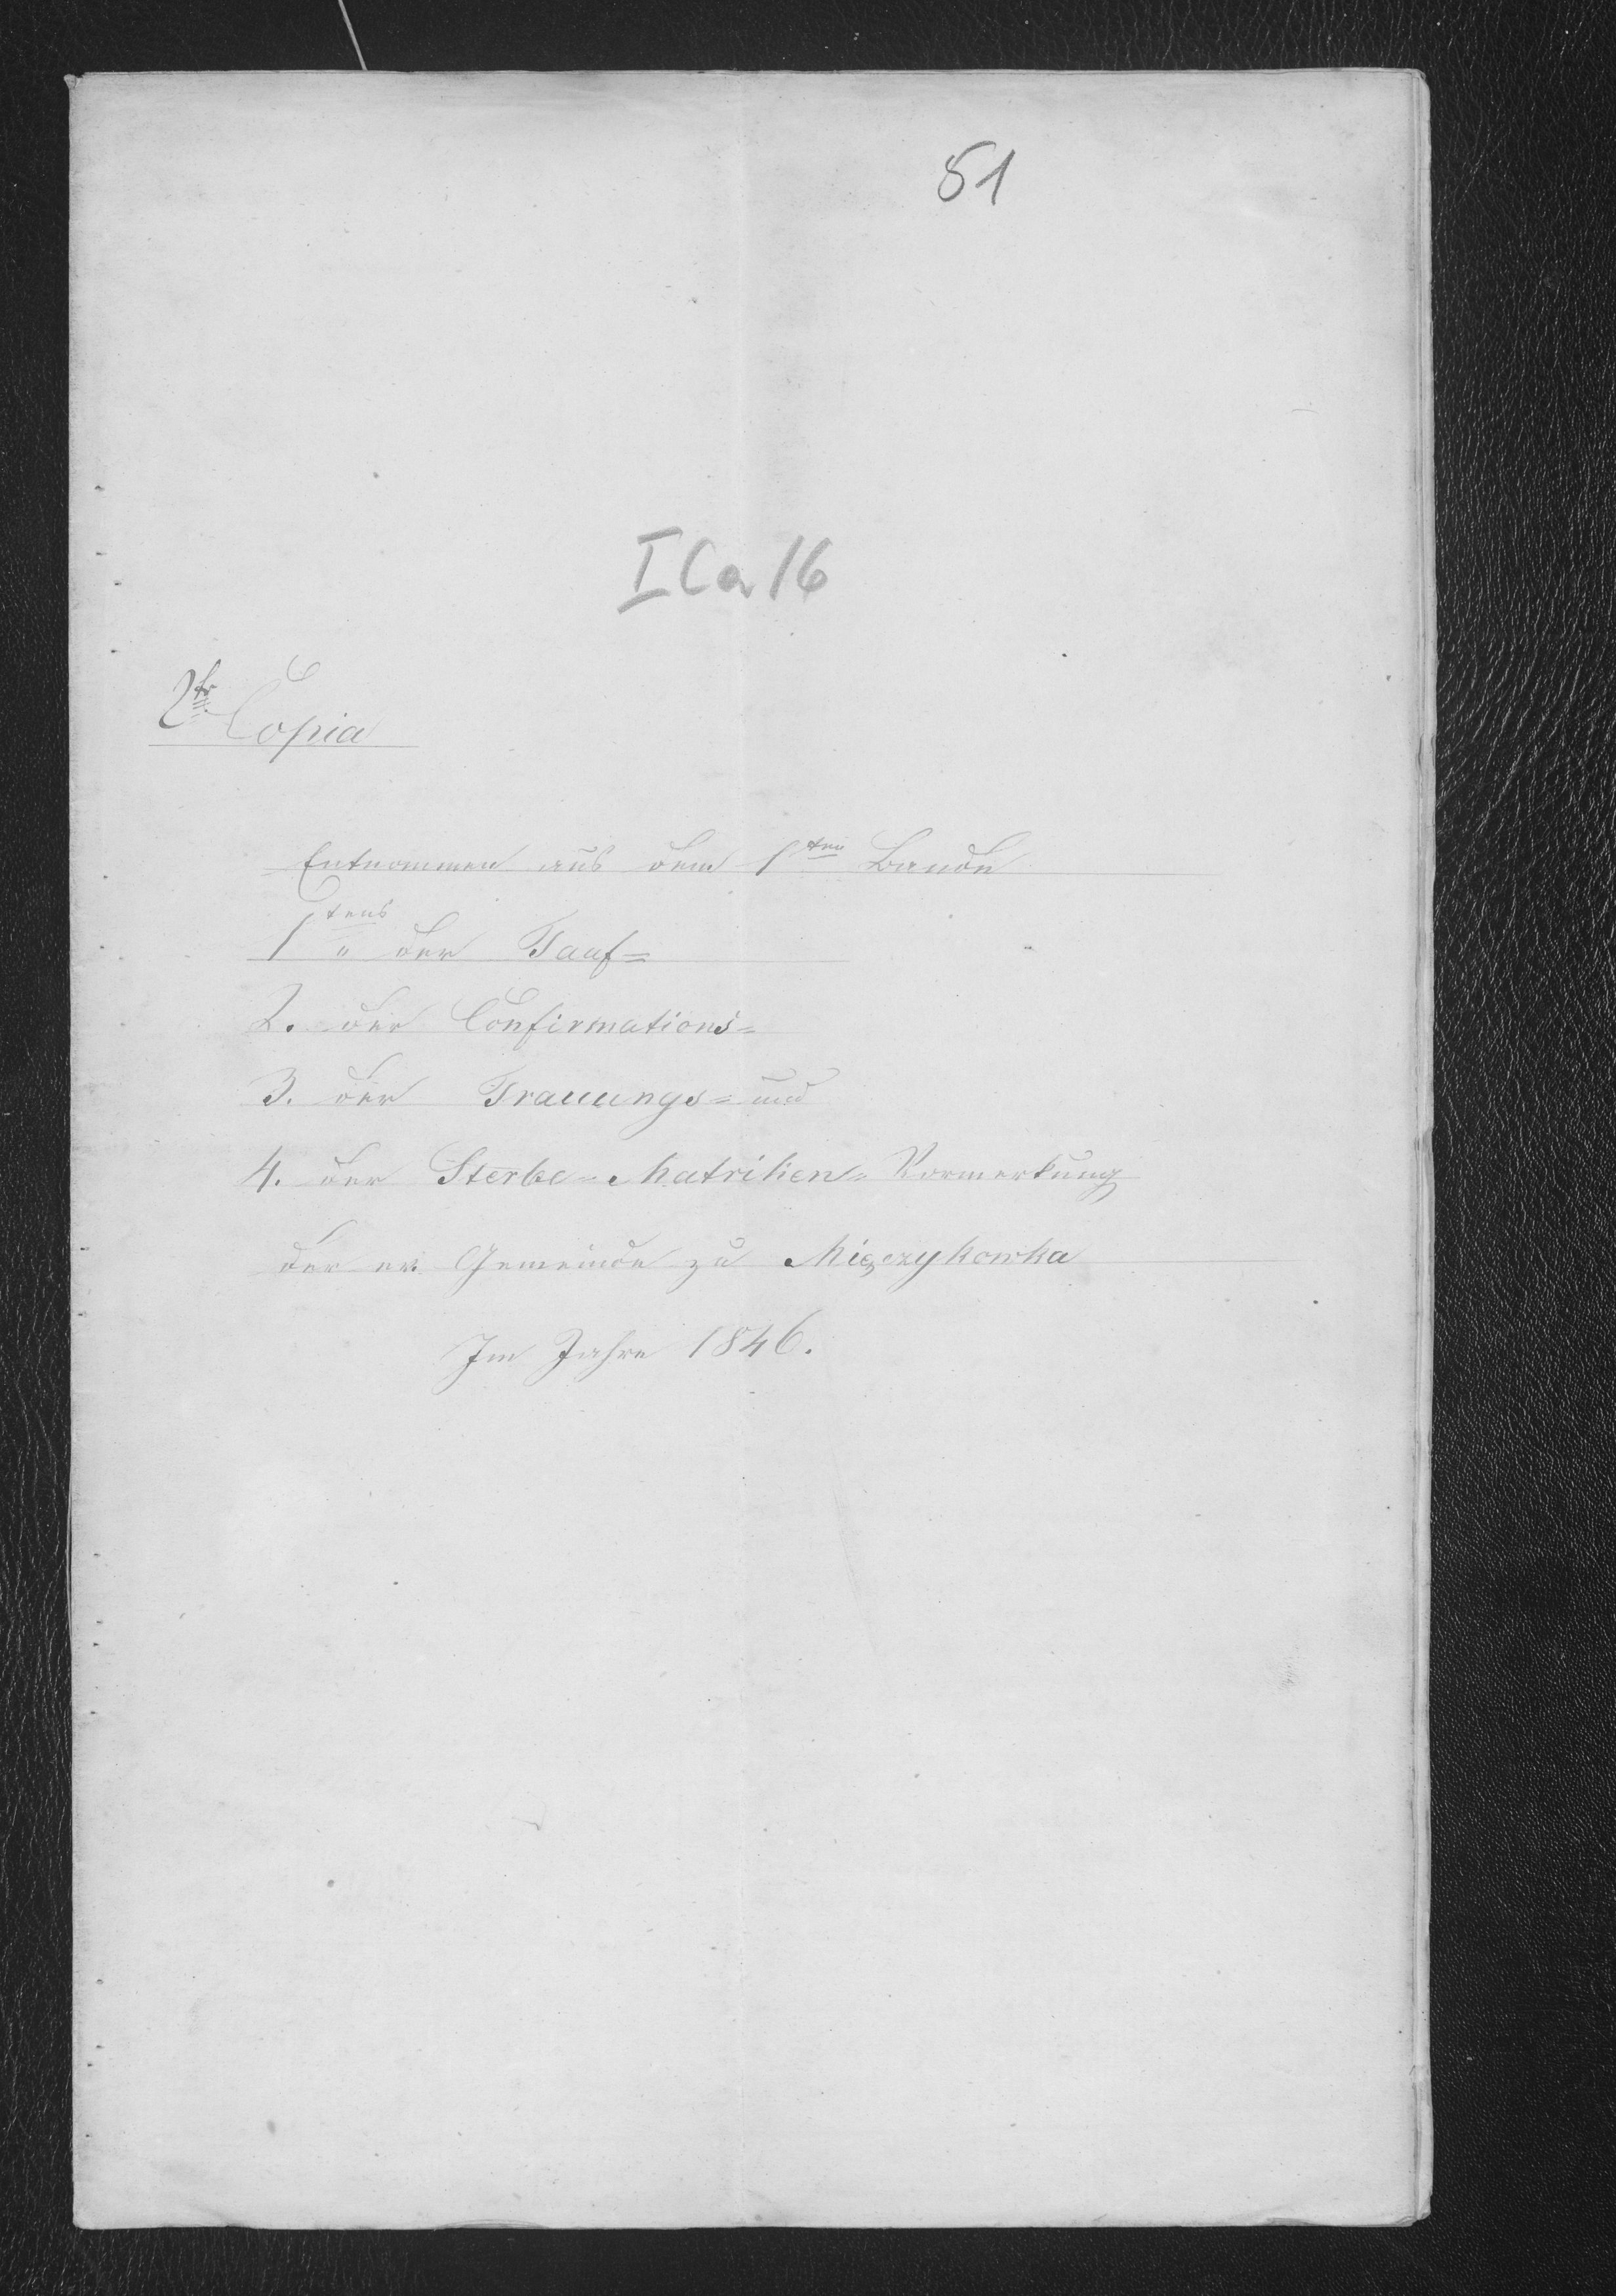 51
I Ca 16
2te Copia
Entnommen aus dem 1ten Bande
1tens der Tauf=
2. der Confirmations=
3. der Trauungs= und
4. der Sterbe= Matriken= Vormerkung
der ev. Gemeinde zu Mięczykowka
Im Jahre 1846.